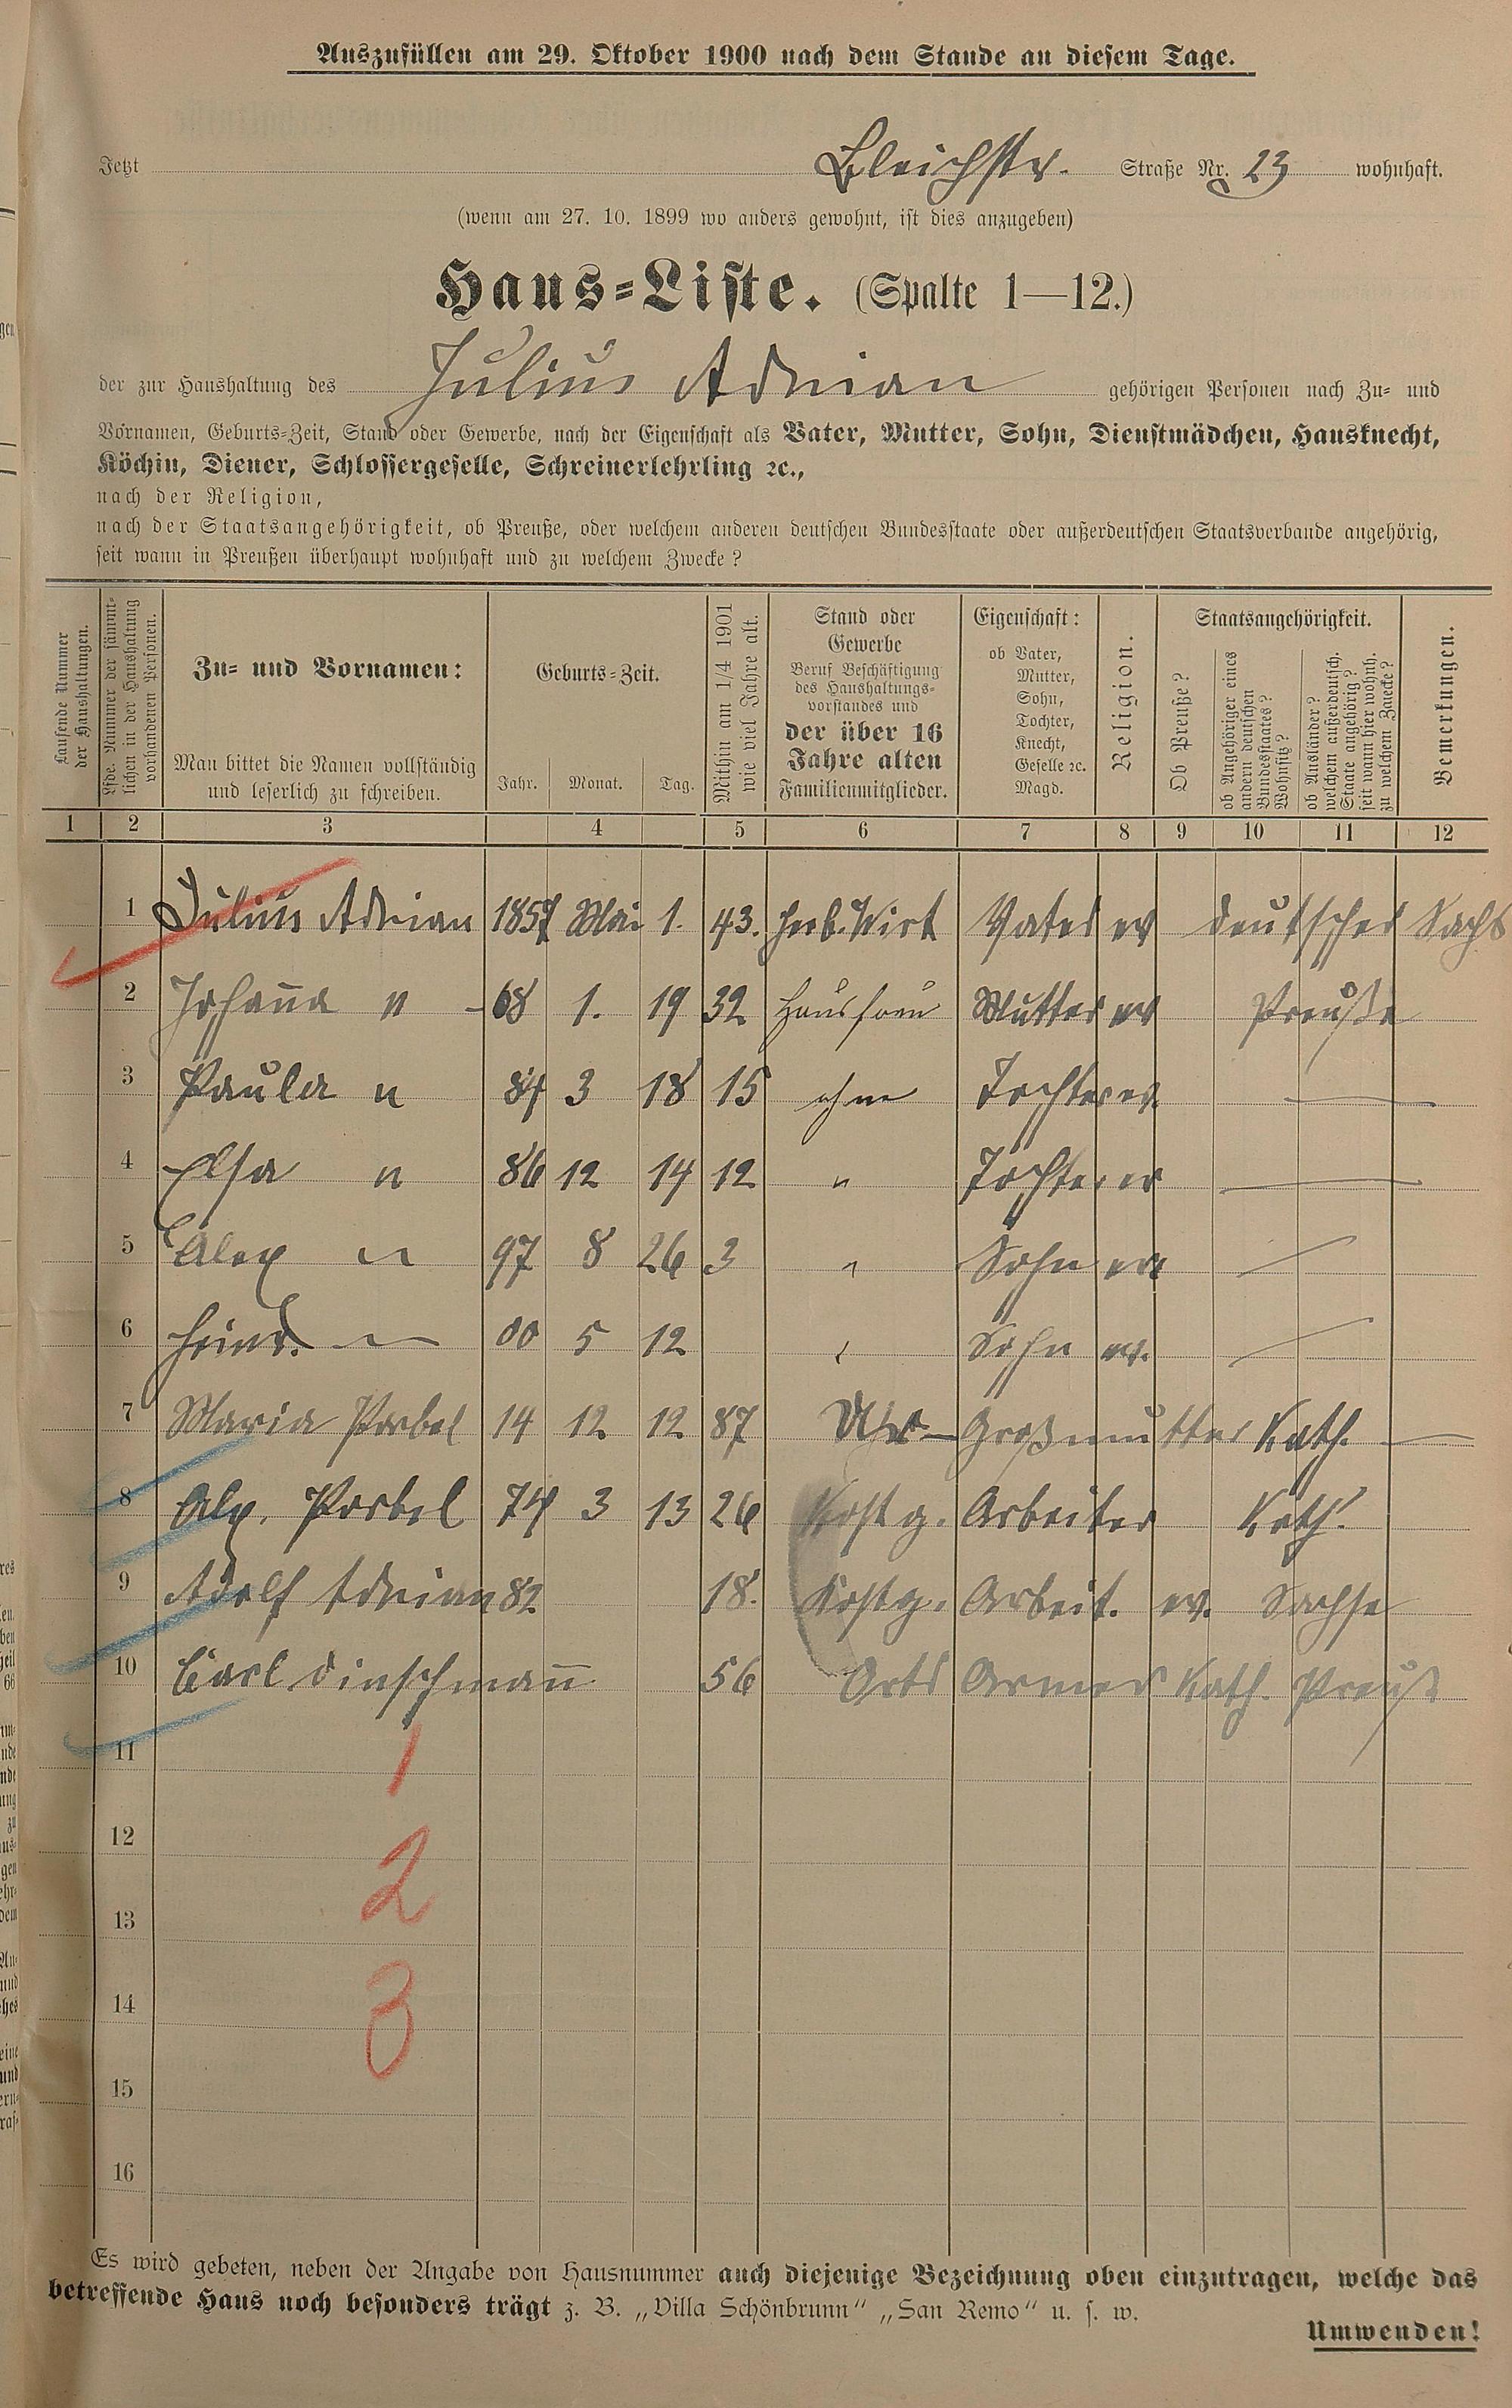 Auszufüllen am 29. Oktober 1900 nach dem Stande an diesem Tage.
Jetzt Bleichstr. Straße Nr. 23 wohnhaft.
(wenn am 27. 10. 1899 wo anders gewohnt, ist dies anzugeben)
Haus-Liste. (Spalte 1—12.)
der zur Haushaltung des Julius Adrian gehörigen Personen nach Zu- und
Vornamen, Geburts-Zeit, Stand oder Gewerbe, nach der Eigenschaft als Vater, Mutter, Sohn, Dienstmädchen, Hausknecht,
Köchin, Diener, Schlossergeselle, Schreinerlehrling ꝛc.,
nach der Religion,
nach der Staatsangehörigkeit, ob Preuße, oder welchem anderen deutschen Bundesstaate oder außerdeutschen Staatsverbande angehörig,
seit wann in Preußen überhaupt wohnhaft und zu welchem Zwecke?
Laufende Nummer
der Haushaltungen.
Lfde. Nummer der sämmt-
lichen in der Haushaltung
vorhandenen Personen.
Zu- und Vornamen:
Man bittet die Namen vollständig
und leserlich zu schreiben.
Geburts-Zeit.
Jahr. Monat. Tag.
Mithin am 1/4 1901
wie viel Jahre alt.
Stand oder
Gewerbe
Beruf Beschäftigung
des Haushaltungs-
vorstandes und
der über 16
Jahre alten
Familienmitglieder.
Eigenschaft:
ob Vater,
Mutter,
Sohn,
Tochter,
Knecht,
Geselle ꝛc.
Magd.
Religion.
Staatsangehörigkeit.
Ob Preuße?
ob Angehöriger eines
andern deutschen
Bundesstaates?
Wohnsitz?
ob Ausländer?
welchem außerdeutsch.
Staate angehörig?
seit wann hier wohnh.
zu welchem Zwecke?
Bemerkungen.
1 2 3 4 5 6 7 8 9 10 11 12
1 Julius Adrian 1857 Mai 1. 43. Herb. Wirt Vater ev deutscher Sachs
2 Johanna " 68 1. 19 32 Hausfrau Mutter ev Preuße
3 Paula " 84 3 18 15 ohne Tochter ev. —
4 Elsa " 86 12 14 12 " Tochter ev —
5 Alex " 97 8 26 3 " Sohn ev —
6 Heinr. " 00 5 12 " Sohn ev. —
7 Maria 14 12 12 87 Ur-Großmutter Kath. —
8 Alex. 74 3 13 26 Kostg. Arbeiter Kath.
9 Adolf Adrian 82 18. Kostg. Arbeit. ev. Sachse
10 Carl 56 Orts Armer Kath. Preuß
11 1
12 2
13
14 3
15
16
Es wird gebeten, neben der Angabe von Hausnummer auch diejenige Bezeichnung oben einzutragen, welche das
betreffende Haus noch besonders trägt z. B. „Villa Schönbrunn“ „San Remo“ u. s. w.
Umwenden!